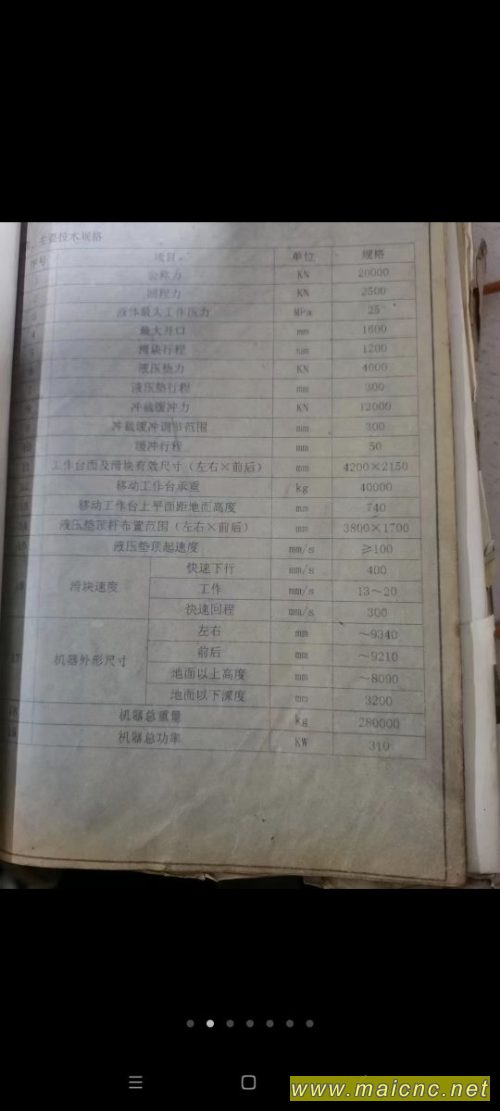 主要技术规格
序号 项目 单位 规格
公称力 KN 20000
回程力 KN 2500
液体最大工作压力 MPa 25
4 最大开口 mm 1600
滑块行程 mm 1200
液压垫力 KN 4000
液压垫行程 mm 300
冲裁缓冲力 KN 12000
冲裁缓冲调节范围 mm 300
缓冲行程 mm 50
工作台面及滑块有效尺寸（左右×前后） mm 4200×2150
移动工作台承重 kg 40000
移动工作台上平面距地面高度 mm 740
液压垫顶杆布置范围（左右×前后） mm 3800×1700
液压垫顶起速度 mm/s ≥100
滑块速度 快速下行 mm/s 400
工作 mm/s 13～20
快速回程 mm/s 300
机器外形尺寸 左右 mm ～9340
前后 mm ～9210
地面以上高度 mm ～8090
地面以下深度 mm 3200
机器总重量 kg 280000
机器总功率 KW 310
www.maicnc.net